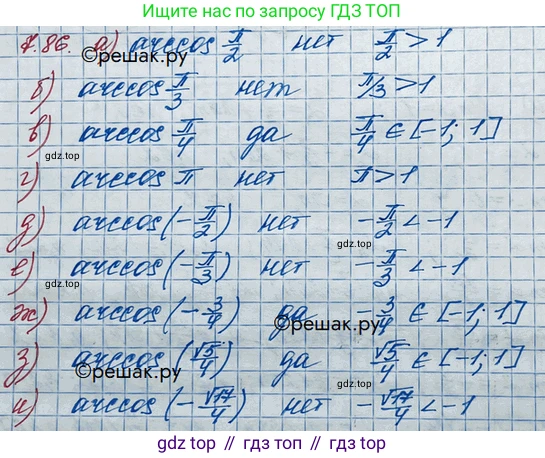 Ищите нас по запросу ГДЗ ТОП
7.86. а) arccos π/2 нет π/2 > 1
©решак.ру
б) arccos π/3 нет π/3 > 1
в) arccos π/4 да π/4 ∈ [-1; 1]
gdz top
gdz top
г) arccos π нет π > 1
д) arccos(-π/2) нет -π/2 < -1
е) arccos(-π/3) нет -π/3 < -1
ж) arccos(-3/4) да -3/4 ∈ [-1; 1]
©решак.ру
з) arccos(√5/4) да √5/4 ∈ [-1; 1]
©решак.ру
gdz top
и) arccos(-√17/4) нет -√17/4 < -1
gdz top // гдз топ // gdz top // гдз топ